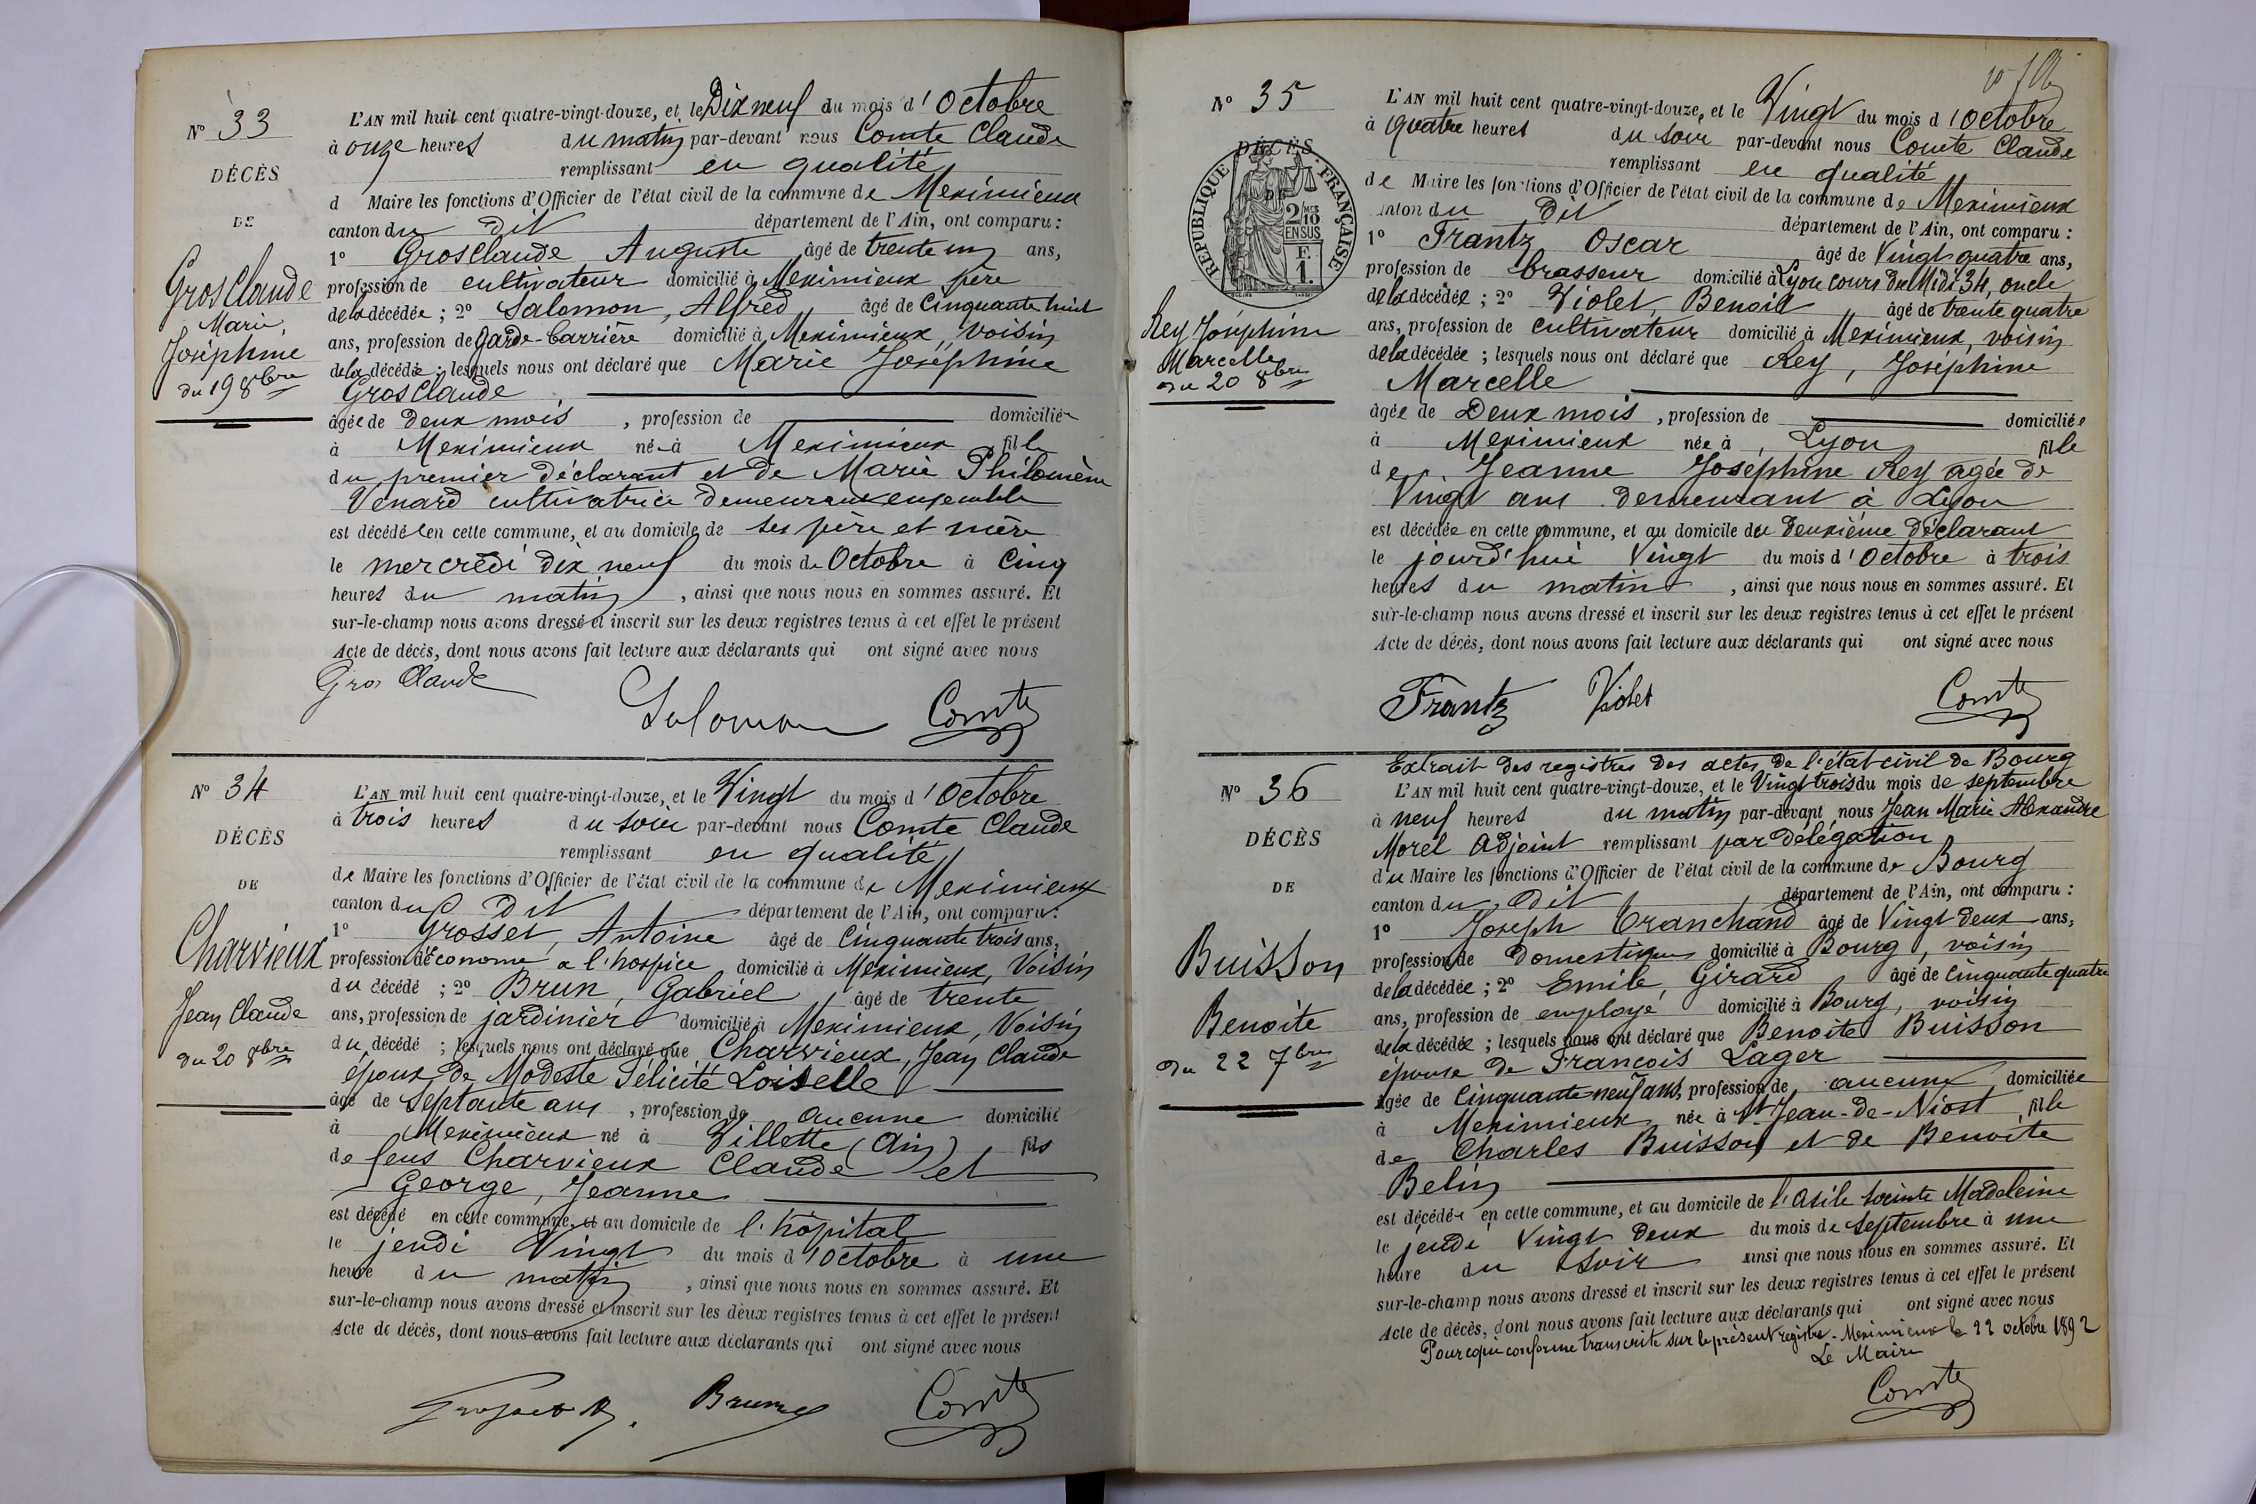 N° 33
DÉCÈS
DE
Grosclaude
Marie,
Joséphine
du 19 8bre
L'AN mil huit cent quatre-vingt-douze, et le Dix neuf du mois d'Octobre
à onze heures du matin par-devant nous Comte Claude
remplissant en qualité
d Maire les fonctions d'Officier de l'état civil de la commune de Meximieux
canton du dit département de l'Ain, ont comparu :
1° Grosclaude Auguste âgé de trente un ans,
profession de cultivateur domicilié à Meximieux père
de la décédée ; 2° Salomon, Alfred âgé de Cinquante huit
ans, profession de Garde-barrière domicilié à Meximieux, voisin
de la décédée ; lesquels nous ont déclaré que Marie Joséphine
Grosclaude
âgée de Deux mois, profession de domiciliée
à Meximieux née à Meximieux fille
du premier déclarant et de Marie Philomène
Venard cultivatrice demeurant ensemble
est décédée en cette commune, et au domicile de ses père et mère
le mercredi dix neuf du mois de Octobre à Cinq
heures du matin, ainsi que nous nous en sommes assuré. Et
sur-le-champ nous avons dressé et inscrit sur les deux registres tenus à cet effet le présent
Acte de décès, dont nous avons fait lecture aux déclarants qui ont signé avec nous
Gros Claude
Salomon Comte
N° 34
DÉCÈS
DE
Charvieux
Jean Claude
du 20 8bre
L'AN mil huit cent quatre-vingt-douze, et le Vingt du mois d'Octobre
à trois heures du soir par-devant nous Comte Claude
remplissant en qualité
de Maire les fonctions d'Officier de l'état civil de la commune de Meximieux
canton du dit département de l'Ain, ont comparu :
1° Grosset, Antoine âgé de Cinquante trois ans,
profession d'économe a l'hospice domicilié à Meximieux, Voisin
du décédé ; 2° Brun, Gabriel âgé de trente
ans, profession de jardinier domicilié à Meximieux, Voisin
du décédé ; lesquels nous ont déclaré que Charvieux, Jean Claude
époux de Modeste Félicité Loiselle
âgé de Septante ans, profession de aucune domicilié
à Meximieux né à Villette (Ain) fils
de feus Charvieux Claude et
George, Jeanne
est décédé en cette commune, et au domicile de l'hôpital
le jeudi Vingt du mois d'Octobre à une
heure du matin, ainsi que nous nous en sommes assuré. Et
sur-le-champ nous avons dressé et inscrit sur les deux registres tenus à cet effet le présent
Acte de décès, dont nous avons fait lecture aux déclarants qui ont signé avec nous
Brun Comte
N° 35
DÉCÈS
DE
RÉPUBLIQUE FRANÇAISE
2/10 EN SUS
F.
1.
Rey Joséphine
Marcelle
du 20 8bre
L'AN mil huit cent quatre-vingt-douze, et le Vingt du mois d'Octobre
à quatre heures du soir par-devant nous Comte Claude
remplissant en qualité
de Maire les fonctions d'Officier de l'état civil de la commune de Meximieux
canton du dit département de l'Ain, ont comparu :
1° Frantz Oscar âgé de Vingt quatre ans,
profession de brasseur domicilié à Lyon cours du Midi 34, oncle
de la décédée ; 2° Violet, Benoit âgé de trente quatre
ans, profession de cultivateur domicilié à Meximieux, voisin
de la décédée ; lesquels nous ont déclaré que Rey, Joséphine
Marcelle
âgée de Deux mois, profession de domiciliée
à Meximieux née à Lyon fille
de Jeanne Joséphine Rey agée de
Vingt ans demeurant à Lyon
est décédée en cette commune, et au domicile du Deuxième déclarant
le jourd'hui Vingt du mois d'Octobre à trois
heures du matin, ainsi que nous nous en sommes assuré. Et
sur-le-champ nous avons dressé et inscrit sur les deux registres tenus à cet effet le présent
Acte de décès, dont nous avons fait lecture aux déclarants qui ont signé avec nous
Frantz Violet Comte
N° 36
DÉCÈS
DE
Buisson
Benoite
du 22 7bre
Extrait des registres des actes de l'état civil de Bourg
L'AN mil huit cent quatre-vingt-douze, et le Vingt trois du mois de septembre
à neuf heures du matin par-devant nous Jean Marie Alexandre
Morel Adjoint remplissant par délégation
du Maire les fonctions d'Officier de l'état civil de la commune de Bourg
canton du dit département de l'Ain, ont comparu :
1° Joseph Tranchand âgé de Vingt deux ans,
profession de Domestique domicilié à Bourg, voisin
de la décédée ; 2° Emile, Girard âgé de Cinquante quatre
ans, profession de employé domicilié à Bourg, voisin
de la décédée ; lesquels nous ont déclaré que Benoite Buisson
épouse de François Lager
âgée de Cinquante neuf ans, profession de aucune domiciliée
à Meximieux née à St Jean-de-Niost fille
de Charles Buisson et de Benoite
Belin
est décédée en cette commune, et au domicile de l'asile Sainte Madeleine
le jeudi Vingt deux du mois de septembre à une
heure du soir ainsi que nous nous en sommes assuré. Et
sur-le-champ nous avons dressé et inscrit sur les deux registres tenus à cet effet le présent
Acte de décès, dont nous avons fait lecture aux déclarants qui ont signé avec nous
Pour copie conforme transcrite sur le présent registre. Meximieux le 22 octobre 1892
Le Maire
Comte